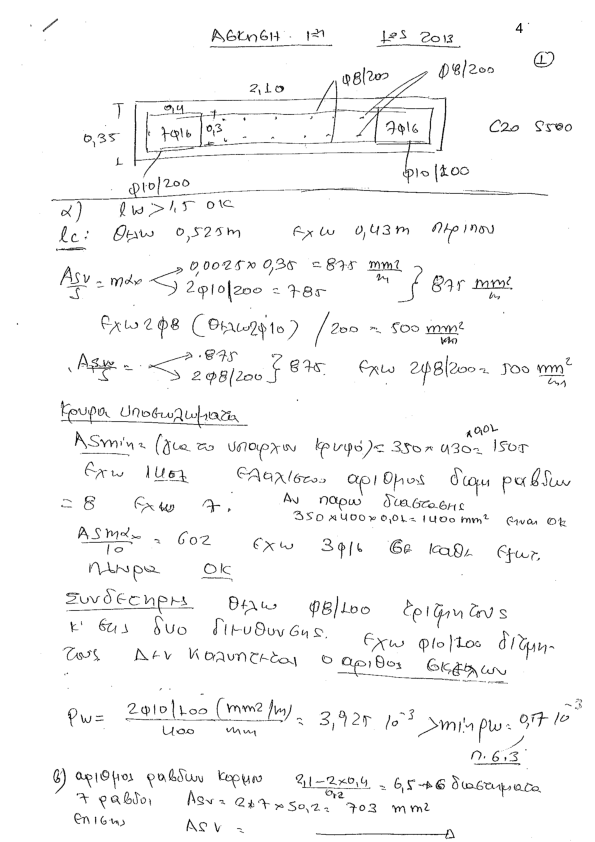 4
ΑΣΚΗΣΗ 1η 2013
1
2,10 Φ8/200 Φ8/200
0,4
0,35 7Φ16 0,3 7Φ16 C20 S500
Φ10/200 Φ10/100
α) lw > 1,5 OK
lc: Θελω 0,525m Εχω 0,43m περιπου
Asv/s = max 0,0025 x 0,35 = 875 mm2/m
2Φ10/200 = 785 } 875 mm2/m
Εχω 2Φ8 (Θελω 2Φ10) /200 = 500 mm2/m
Asw/s = 875
2Φ8/200 } 875. Εχω 2Φ8/200 = 500 mm2/m
Κρυφα υποστυλωματα
ASmin = (για το υπαρχον κρυφό) = 350 x 430 x 0,01 = 1505
Εχω 1407 Ελαχιστος αριθμος διαμ ραβδων
= 8 Εχω 7. Αν παρω διαστασης
350 x 400 x 0,01 = 1400 mm2 ειναι OK
ASmax/10 = 602 Εχω 3Φ16 σε καθε εξωτ.
πλευρα OK
Συνδετηρες Θελω Φ8/100 τριτμητους
κ' στις δυο διευθυνσης. Εχω Φ10/100 διτμη-
τους Δεν καλυπτεται ο αριθος σκελων
ρw = 2Φ10/100 (mm2/m) / 400 mm = 3,925 10-3 > min ρw = 0,77 10-3
π. 6.3
β) αριθμος ραβδων κορμου 2,1-2x0,4 / 0,2 = 6,5 → 6 διαστηματα
7 ραβδοι Asv = 2x7 x 50,2 = 703 mm2
επισης ASV =